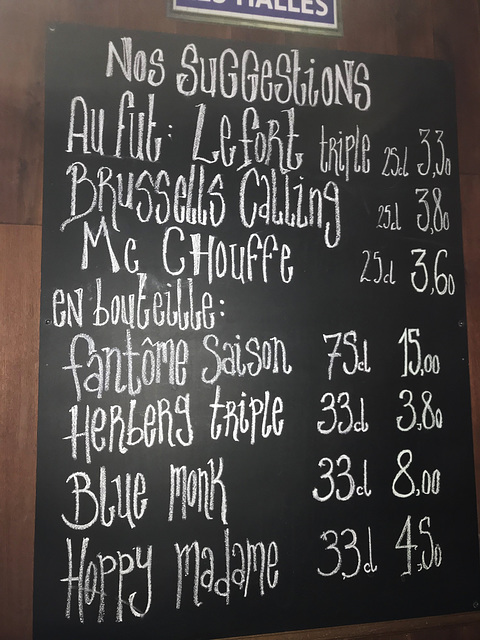 LES HALLES
Nos SUGGEstioNS
Au fut: Lefort triple 25cl 3,30
BRUSSELLS CALLING 25cl 3,80
Mc CHouffe 25cl 3,60
en bouteille:
fantôme Saison 75cl 15,00
HERBERG triple 33cl 3,80
Blue monk 33cl 8,00
Hoppy madame 33cl 4,50